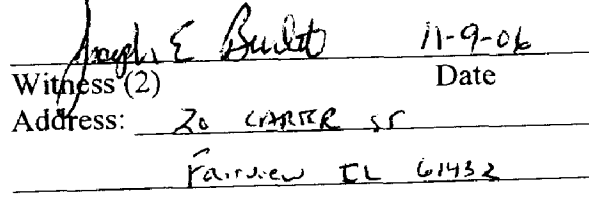 Joseph E 11-9-06
Witness (2) Date
Address: 20 CARTER ST
Fairview IL 61432